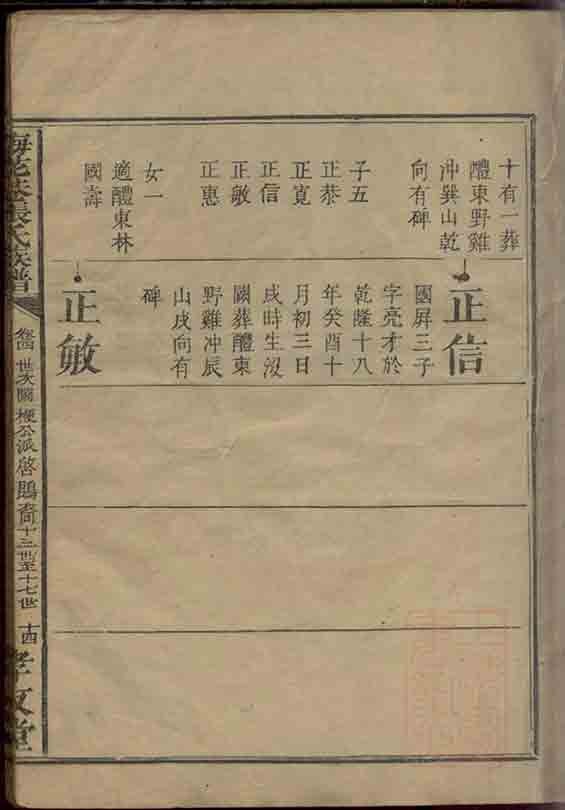 十有一葬
醴東野雞
冲巽山乾
向有碑
子五
正恭
正寬
正信
正敏
正惠
女一
適醴東林
國壽
正信
國昇三子
字亮才於
乾隆十八
年癸酉十
月初三日
戌時生沒
闕葬醴東
野雞冲辰
山戌向有
碑
正敏
張氏族譜
世次圖 公派啓鵾裔十三世至十七世
孝友堂